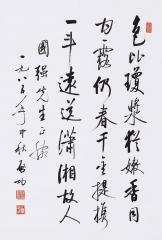 色比瓊漿猶嫩香同
甘露仍春十千提携
一斗遠送瀟湘故人
國強先生正腕
一九八五年中秋啟功